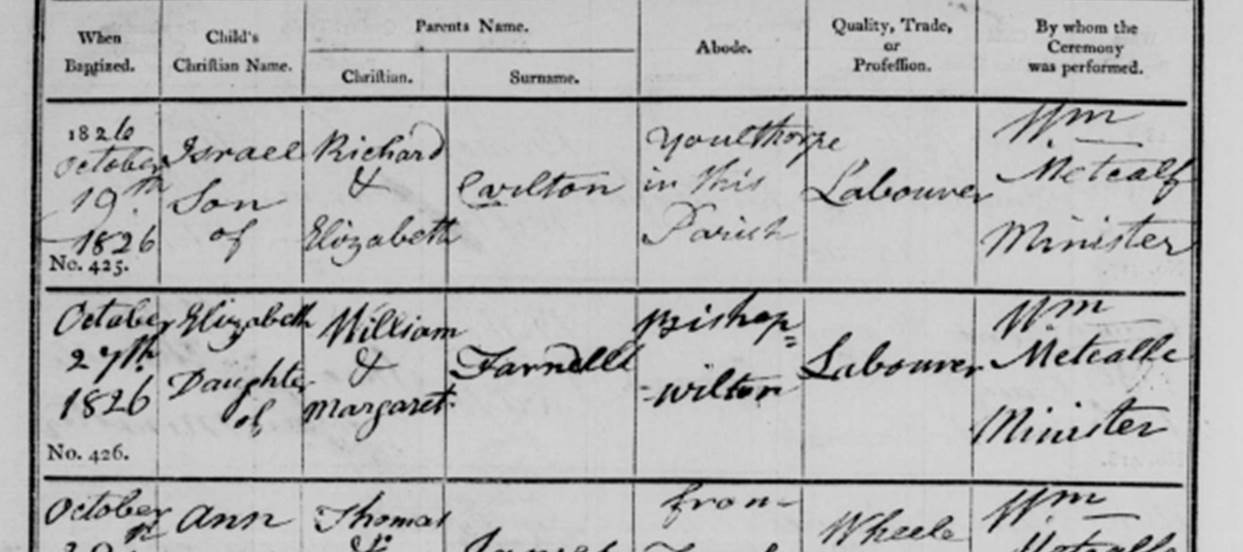 When Baptized.
Child's Christian Name.
Parents Name.
Christian.
Surname.
Abode.
Quality, Trade, or Profession.
By whom the Ceremony was performed.
1826
October
19th
1826
No. 425.
Israel
Son
of
Richard
&
Elizabeth
Carlton
Youlthorpe
in this
Parish
Labourer
Wm
Metcalf
Minister
October
27th
1826
No. 426.
Elizabeth
Daughter
of
William
&
Margaret
Farnell
Bishop=
-wilton
Labourer
Wm
Metcalfe
Minister
October
Ann
Thomas
&
James
fron-
Wheele
Wm
Metcalfe